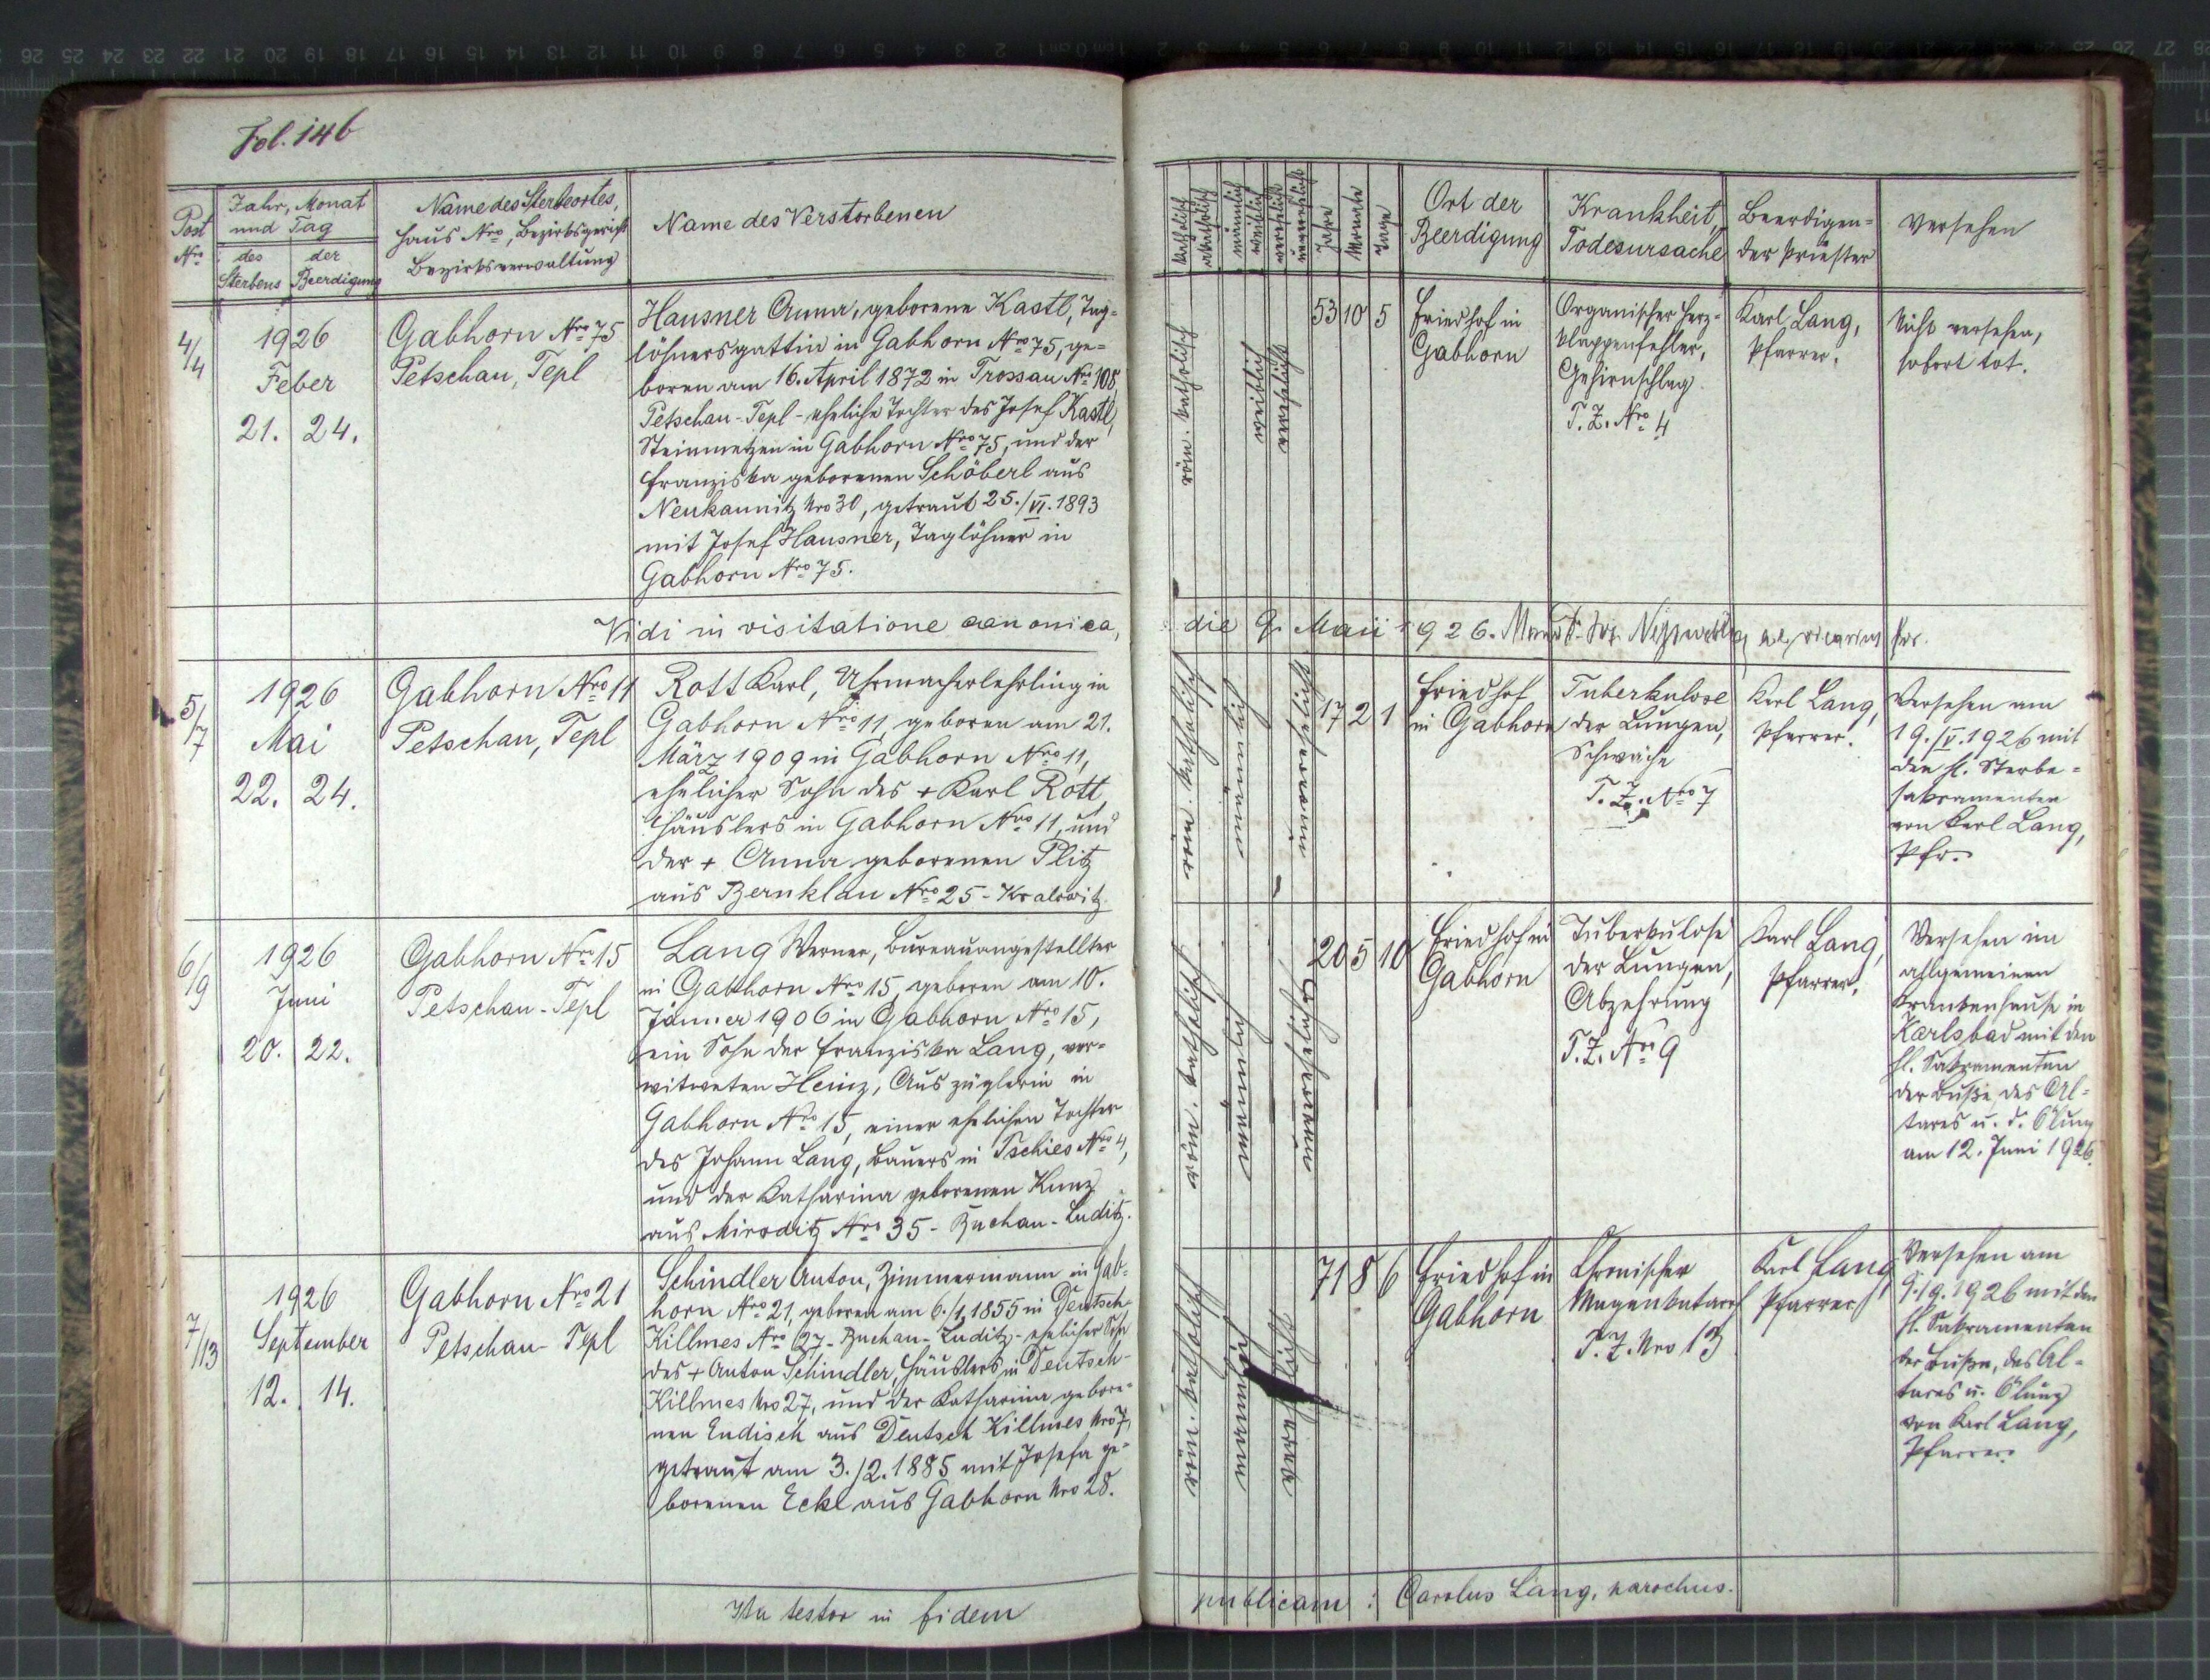 Fol. 146
Post
Nro
Jahr, Monat
und Tag
des
Sterbens
der
Beerdigung
Name des Sterbeortes,
Haus Nro, Bezirksgericht
Bezirksverwaltung
Name des Verstorbenen
katholisch
akatholisch
männlich
weiblich
verehelicht
unverehelicht
Jahre
Monate
Tage
Ort der
Beerdigung
Krankheit,
Todesursache
Beerdigen-
der Priester
Versehen
4/4
1926
Feber
21. 24.
Gabhorn Nro 75
Petschau, Tepl
Hausner Anna, geborene Kastl, Tag-
löhnersgattin in Gabhorn Nro 75, ge-
boren am 16. April 1872 in Trossau Nro 108
Petschau-Tepl - eheliche Tochter des Josef Kastl,
Steinmetzen in Gabhorn Nro 75, und der
Franziska geborenen Schöberl aus
Neukaunitz Nro 30, getraut 25./VI. 1893
mit Josef Hausner, Taglöhner in
Gabhorn Nro 75.
röm. katholisch
weiblich
verehelicht
53 10 5
Friedhof in
Gabhorn
Organischer Herz-
klappenfehler,
Gehirnschlag.
T. Z. Nro 4
Karl Lang,
Pfarrer.
Nicht versehen,
sofort tot.
Vidi in visitatione canonica,
die 9. Maii 1926.
5/7
1926
Mai
22. 24.
Gabhorn Nro 11
Petschau, Tepl
Rott Karl, Uhrmacherlehrling in
Gabhorn Nro 11, geboren am 21.
März 1909 in Gabhorn Nro 11,
ehelicher Sohn des + Karl Rott,
Häuslers in Gabhorn Nro 11, und
der + Anna geborenen Plitz
aus Bernklau Nro 25 - Kralowitz.
röm. katholisch
männlich
unverehelicht
17 2 1
Friedhof
in Gabhorn
Tuberkulose
der Lungen,
Schwäche
T. Z. Nro 7
Karl Lang,
Pfarrer.
Versehen am
19./V. 1926 mit
den hl. Sterbe-
sakramenten
von Karl Lang,
Pfr.
6/9
1926
Juni
20. 22.
Gabhorn Nro 15
Petschau - Tepl
Lang Werner, Bureauangestellter
in Gabhorn Nro 15, geboren am 10.
Jänner 1906 in Gabhorn Nro 15,
ein Sohn der Franziska Lang, ver-
witweten Heinz, Auszüglerin in
Gabhorn Nro 15, einer ehelichen Tochter
des Johann Lang, Bauers in Tschies Nro 4,
und der Katharina geborenen Kunz
aus Miroditz Nro 35 - Buchau - Luditz.
röm. katholisch
männlich
unverehelicht
20 5 10
Friedhof in
Gabhorn
Tuberkulose
der Lungen,
Abzehrung
T. Z. Nro 9
Karl Lang,
Pfarrer.
Versehen im
allgemeinen
Krankenhause in
Karlsbad mit den
hl. Sakramenten
der Buße, des Al-
tares u. d. Ölung
am 12. Juni 1926.
7/13
1926
September
12. 14.
Gabhorn Nro 21
Petschau - Tepl
Schindler Anton, Zimmermann in Gab-
horn Nro 21, geboren am 6./1. 1855 in Deutsch-
Killmes Nro 27 - Buchau - Luditz - ehelicher Sohn
des + Anton Schindler, Häuslers in Deutsch-
Killmes Nro 27, und der Katharina gebore-
nen Endisch aus Deutsch Killmes Nro 7,
getraut am 3./2. 1885 mit Josefa ge-
borenen Eckl aus Gabhorn Nro 28.
röm. katholisch
männlich
verehelicht
71 8 6
Friedhof in
Gabhorn
Chronischer
Magenkatarrh
T. Z. Nro 13
Karl Lang,
Pfarrer
Versehen am
9./9. 1926 mit den
hl. Sakramenten
der Buße, des Al-
tares u. Ölung
von Karl Lang,
Pfarrer.
Ita testor in fidem
publicam : Carolus Lang, parochus.